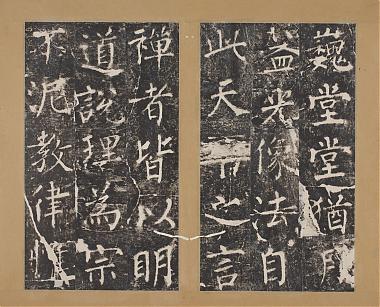 巍堂堂猶月
益光像法自
此天下之言
禪者皆以明
道說理為宗
不泥教律惟